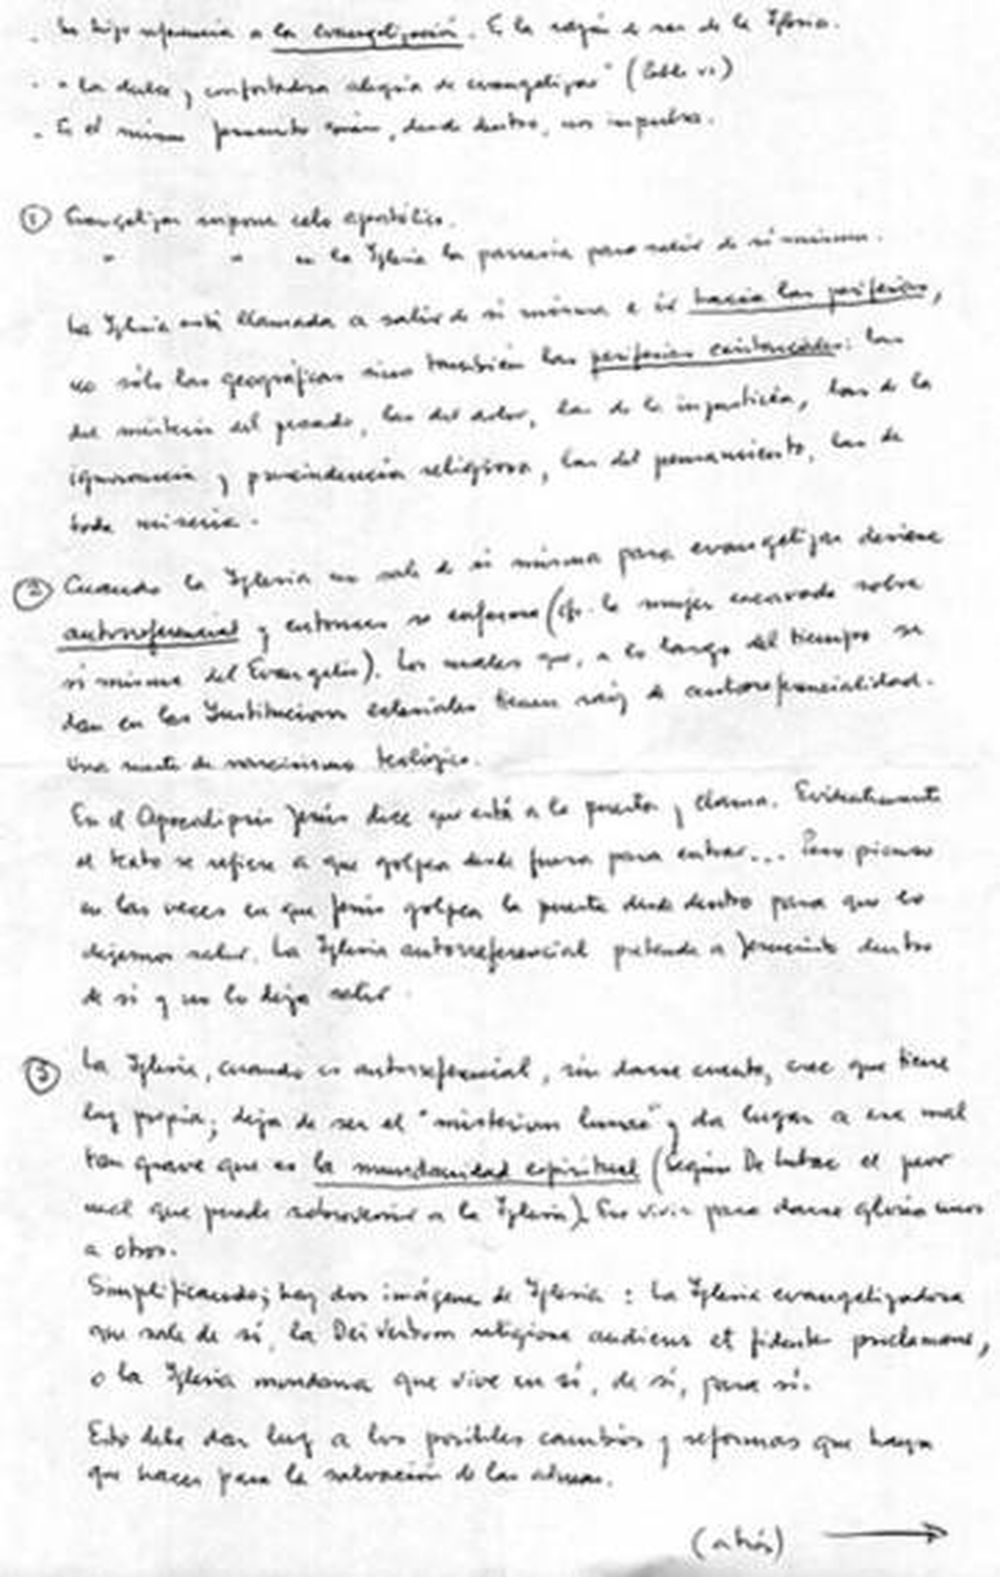 - Se hizo referencia a la evangelización. Es la razón de ser de la Iglesia.
- "la dulce y confortadora alegría de evangelizar" (Pablo VI)
- Es el mismo Jesucristo quien, desde dentro, nos impulsa.
① Evangelizar supone celo apostólico.
" " en la Iglesia la parresía para salir de sí misma.
La Iglesia está llamada a salir de sí misma e ir hacia las periferias,
no sólo las geográficas sino también las periferias existenciales: las
del misterio del pecado, las del dolor, las de la injusticia, las de la
ignorancia y prescindencia religiosa, las del pensamiento, las de
toda miseria.
② Cuando la Iglesia no sale de sí misma para evangelizar deviene
autorreferencial y entonces se enferma (cfr. la mujer encorvada sobre
sí misma del Evangelio). Los males que, a lo largo del tiempo se
dan en las Instituciones eclesiales tienen raíz de autorreferencialidad.
Una suerte de narcisismo teológico.
En el Apocalipsis Jesús dice que está a la puerta y llama. Evidentemente
el texto se refiere a que golpea desde fuera para entrar... Pero pienso
en las veces en que Jesús golpea la puerta desde dentro para que lo
dejemos salir. La Iglesia autorreferencial pretende a Jesucristo dentro
de sí y no lo deja salir
③ La Iglesia, cuando es autorreferencial, sin darse cuenta, cree que tiene
luz propia; deja de ser el "misterium lunae" y da lugar a ese mal
tan grave que es la mundanidad espiritual (Según De Lubac el peor
mal que puede sobrevenir a la Iglesia). Ese vivir para darse gloria unos
a otros.
Simplificando; hay dos imágenes de Iglesia: La Iglesia evangelizadora
que sale de sí, la Dei Verbum religiose audiens et fidenter proclamans,
o la Iglesia mundana que vive en sí, de sí, para sí.
Esto debe dar luz a los posibles cambios y reformas que haya
que hacer para la salvación de las almas.
(atrás) →